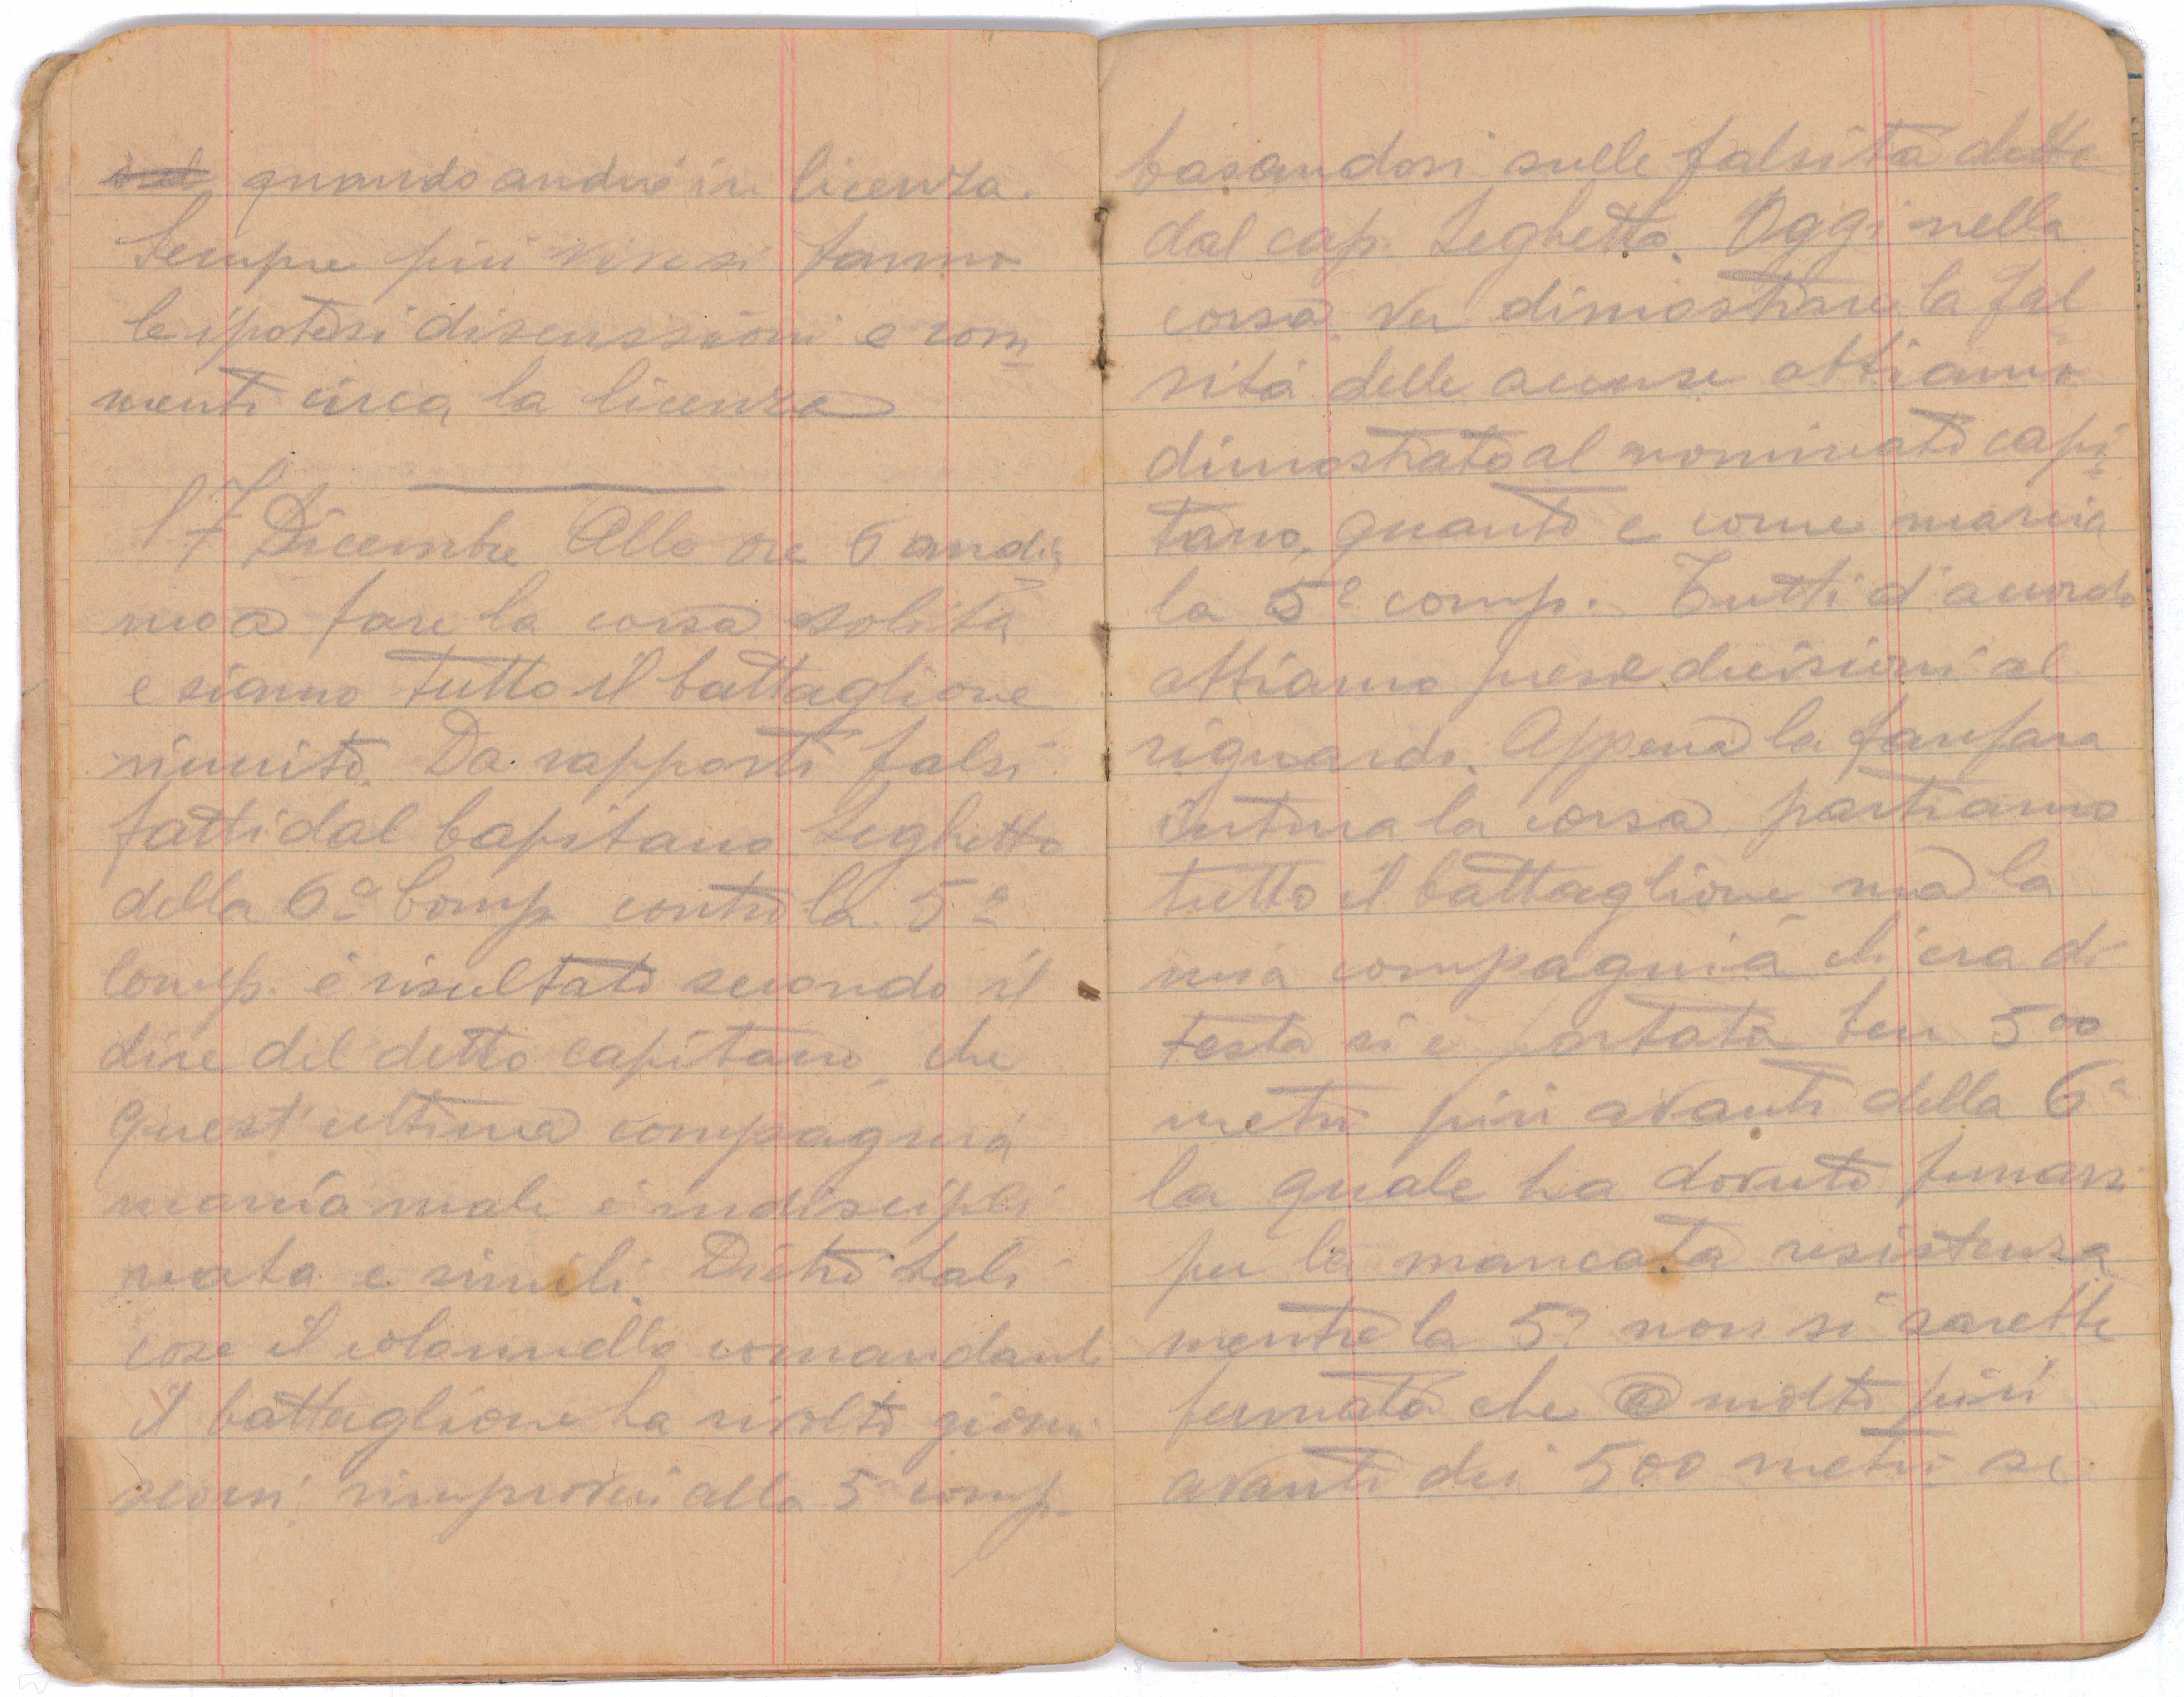 quando andrò in licenza.
Sempre più vive si fanno
le ipotesi discussioni e com
menti circa la licenza
17 Dicembre Alle ore 6 andia
mo a fare la corsa solita
e siamo tutto il battaglione
riunito. Da rapporti falsi
fatti dal Capitano Leghetto
della 6ª Comp contro la 5ª
Comp. è risultato secondo il
dire del detto capitano, che
quest'ultima compagnia
marcia male è indiscipli
nata e simili. Dietro tali
cose il colonnello comandante
il battaglione ha rivolto giorni
scorsi, rimproveri alla 5ª comp.
basandosi sulle falsità dette
dal cap. Leghetto. Oggi nella
corsa per dimostrare la fal
sità delle accuse abbiamo
dimostrato al nominato capi
tano, quanto e come marcia
la 5ª comp. Tutti d'acordo
abbiamo prese decisioni al
riguardo. Appena la fanfara
intona la corsa, partiamo
tutto il battaglione ma la
mia compagnia ch'era di
testa si è portata ben 500
metri più avanti della 6ª
la quale ha dovuto fermarsi
per la mancata resistenza
mentre la 5ª non si sarebbe
fermata che a molto più
avanti dei 500 metri se